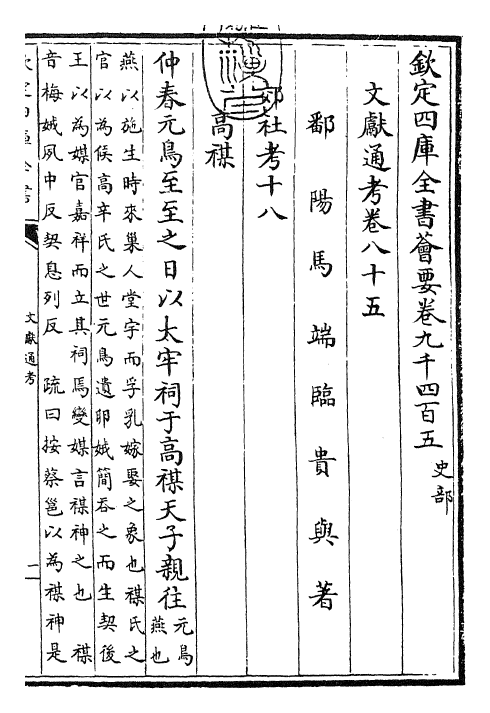 欽定四庫全書薈要卷九千四百五 史部
文獻通考卷八十五
鄱陽馬端臨貴與著
郊社考十八
高禖
仲春元鳥至至之日以太牢祠于高禖天子親往 元鳥燕也
燕以施生時來巢人堂宇而孚乳嫁娶之象也禖氏之
官以為候高辛氏之世元鳥遺卵娀簡吞之而生契後
王以為媒官嘉祥而立其祠焉變媒言禖神之也 禖
音梅娀夙中反契息列反 疏曰按蔡邕以為禖神是
文獻通考
一